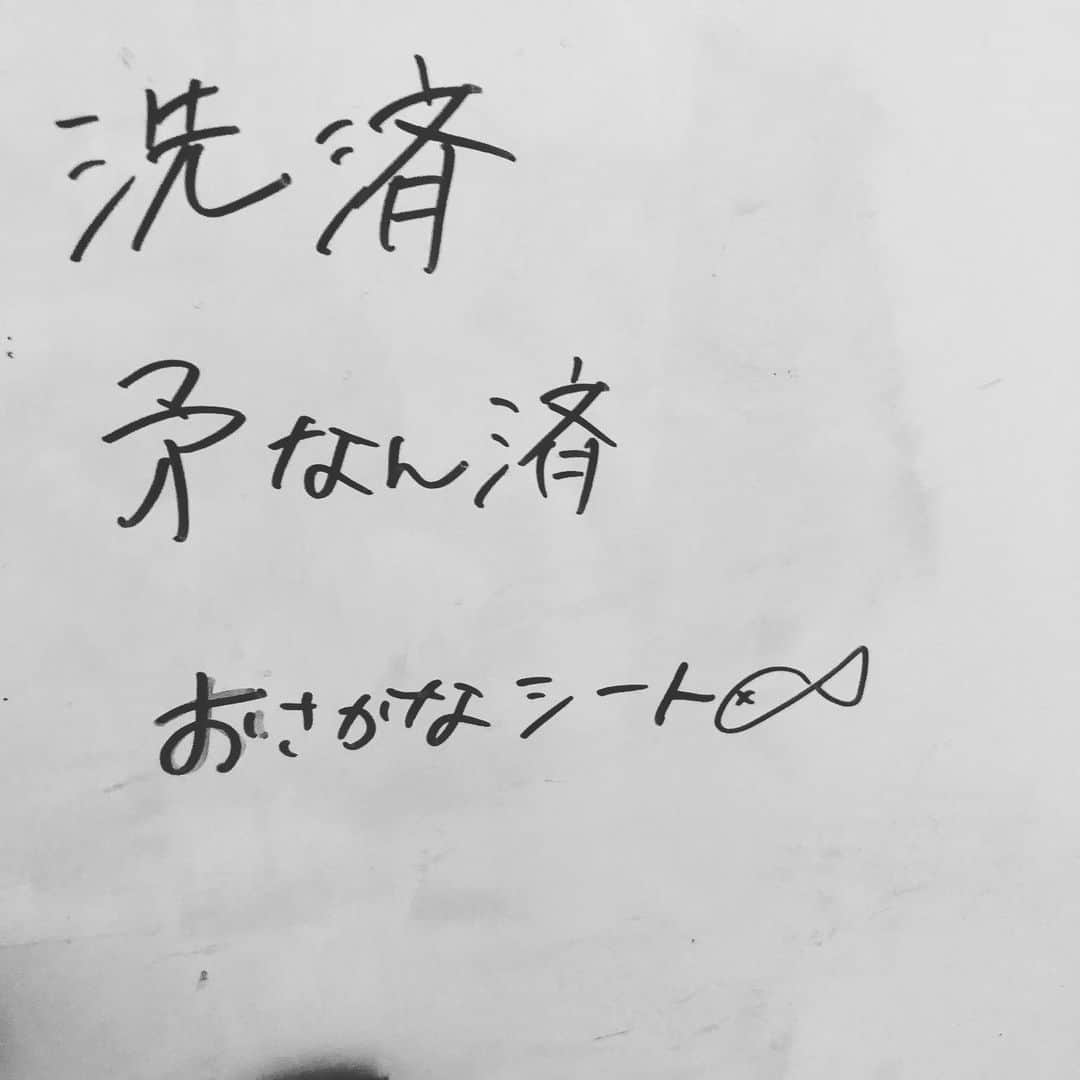 洗済
予なん済
おさかなシート